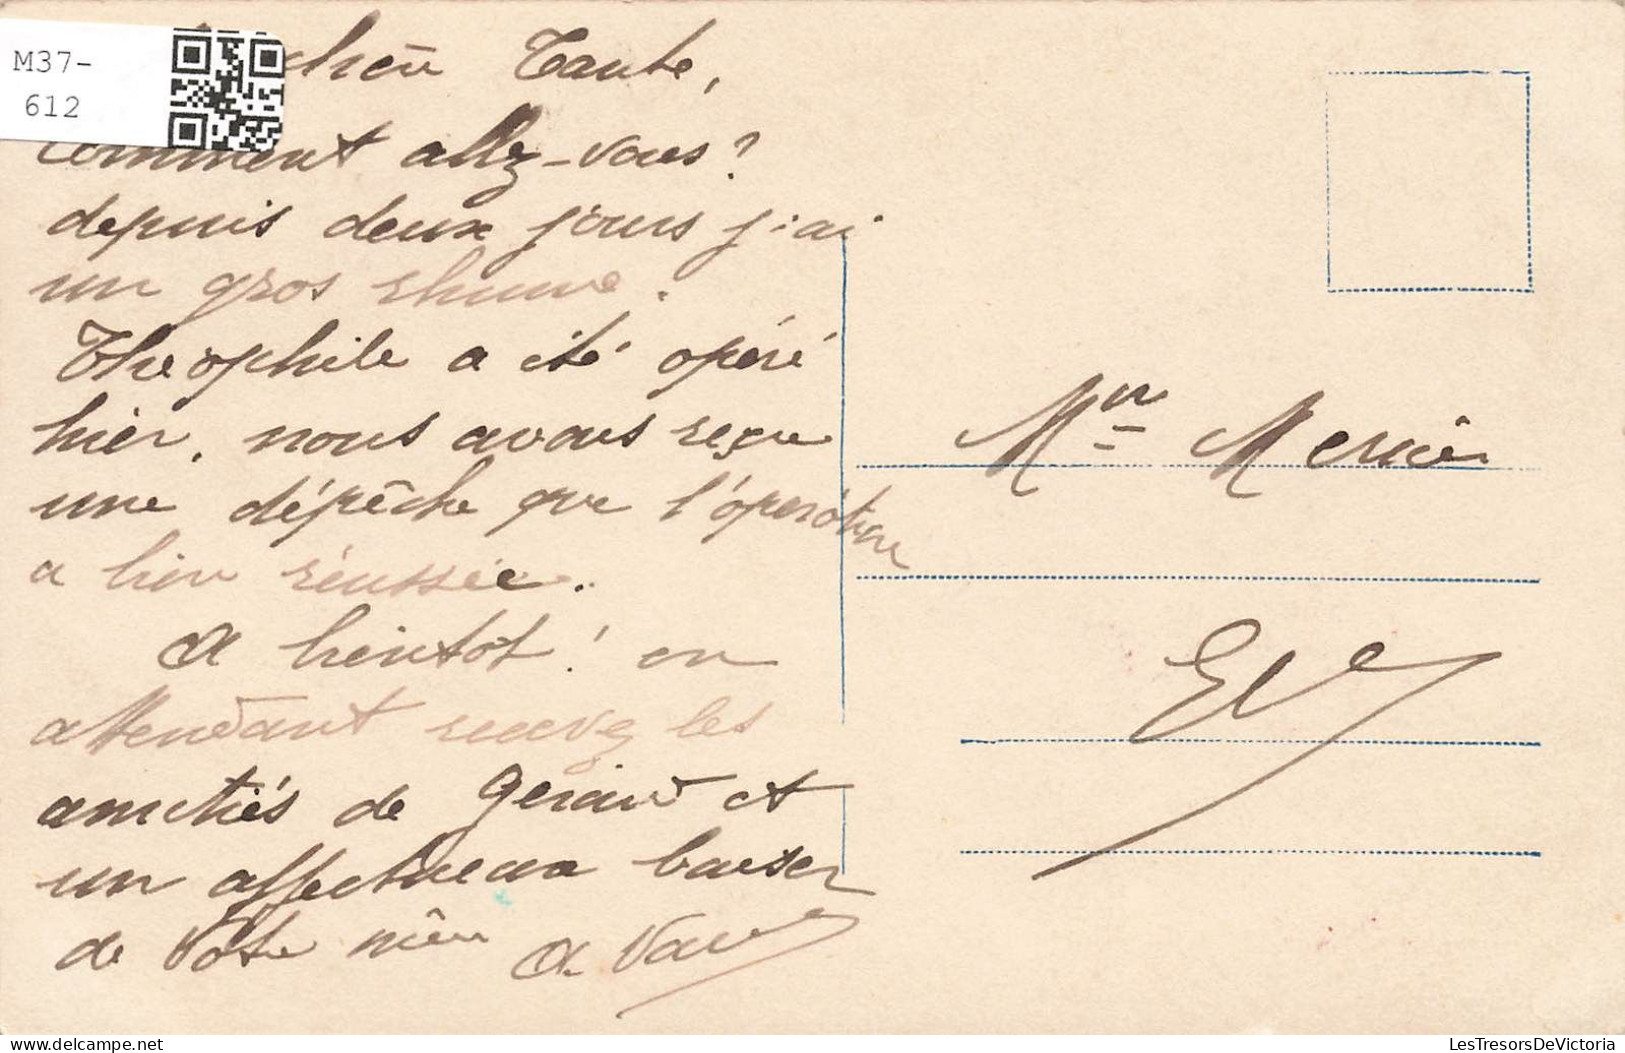 M37-
612
Tante,
comment allez-vous?
depuis deux jours j'ai
un gros rhume.
Théophile a été opéré
hier, nous avons reçu
une dépêche que l'opération
a bien réussie.
A bientôt! en
attendant recevez les
amitiés de Gérard et
un affectueux baiser
de votre A.
Mercier
EV
delcampe.net
LesTresorsDeVictoria